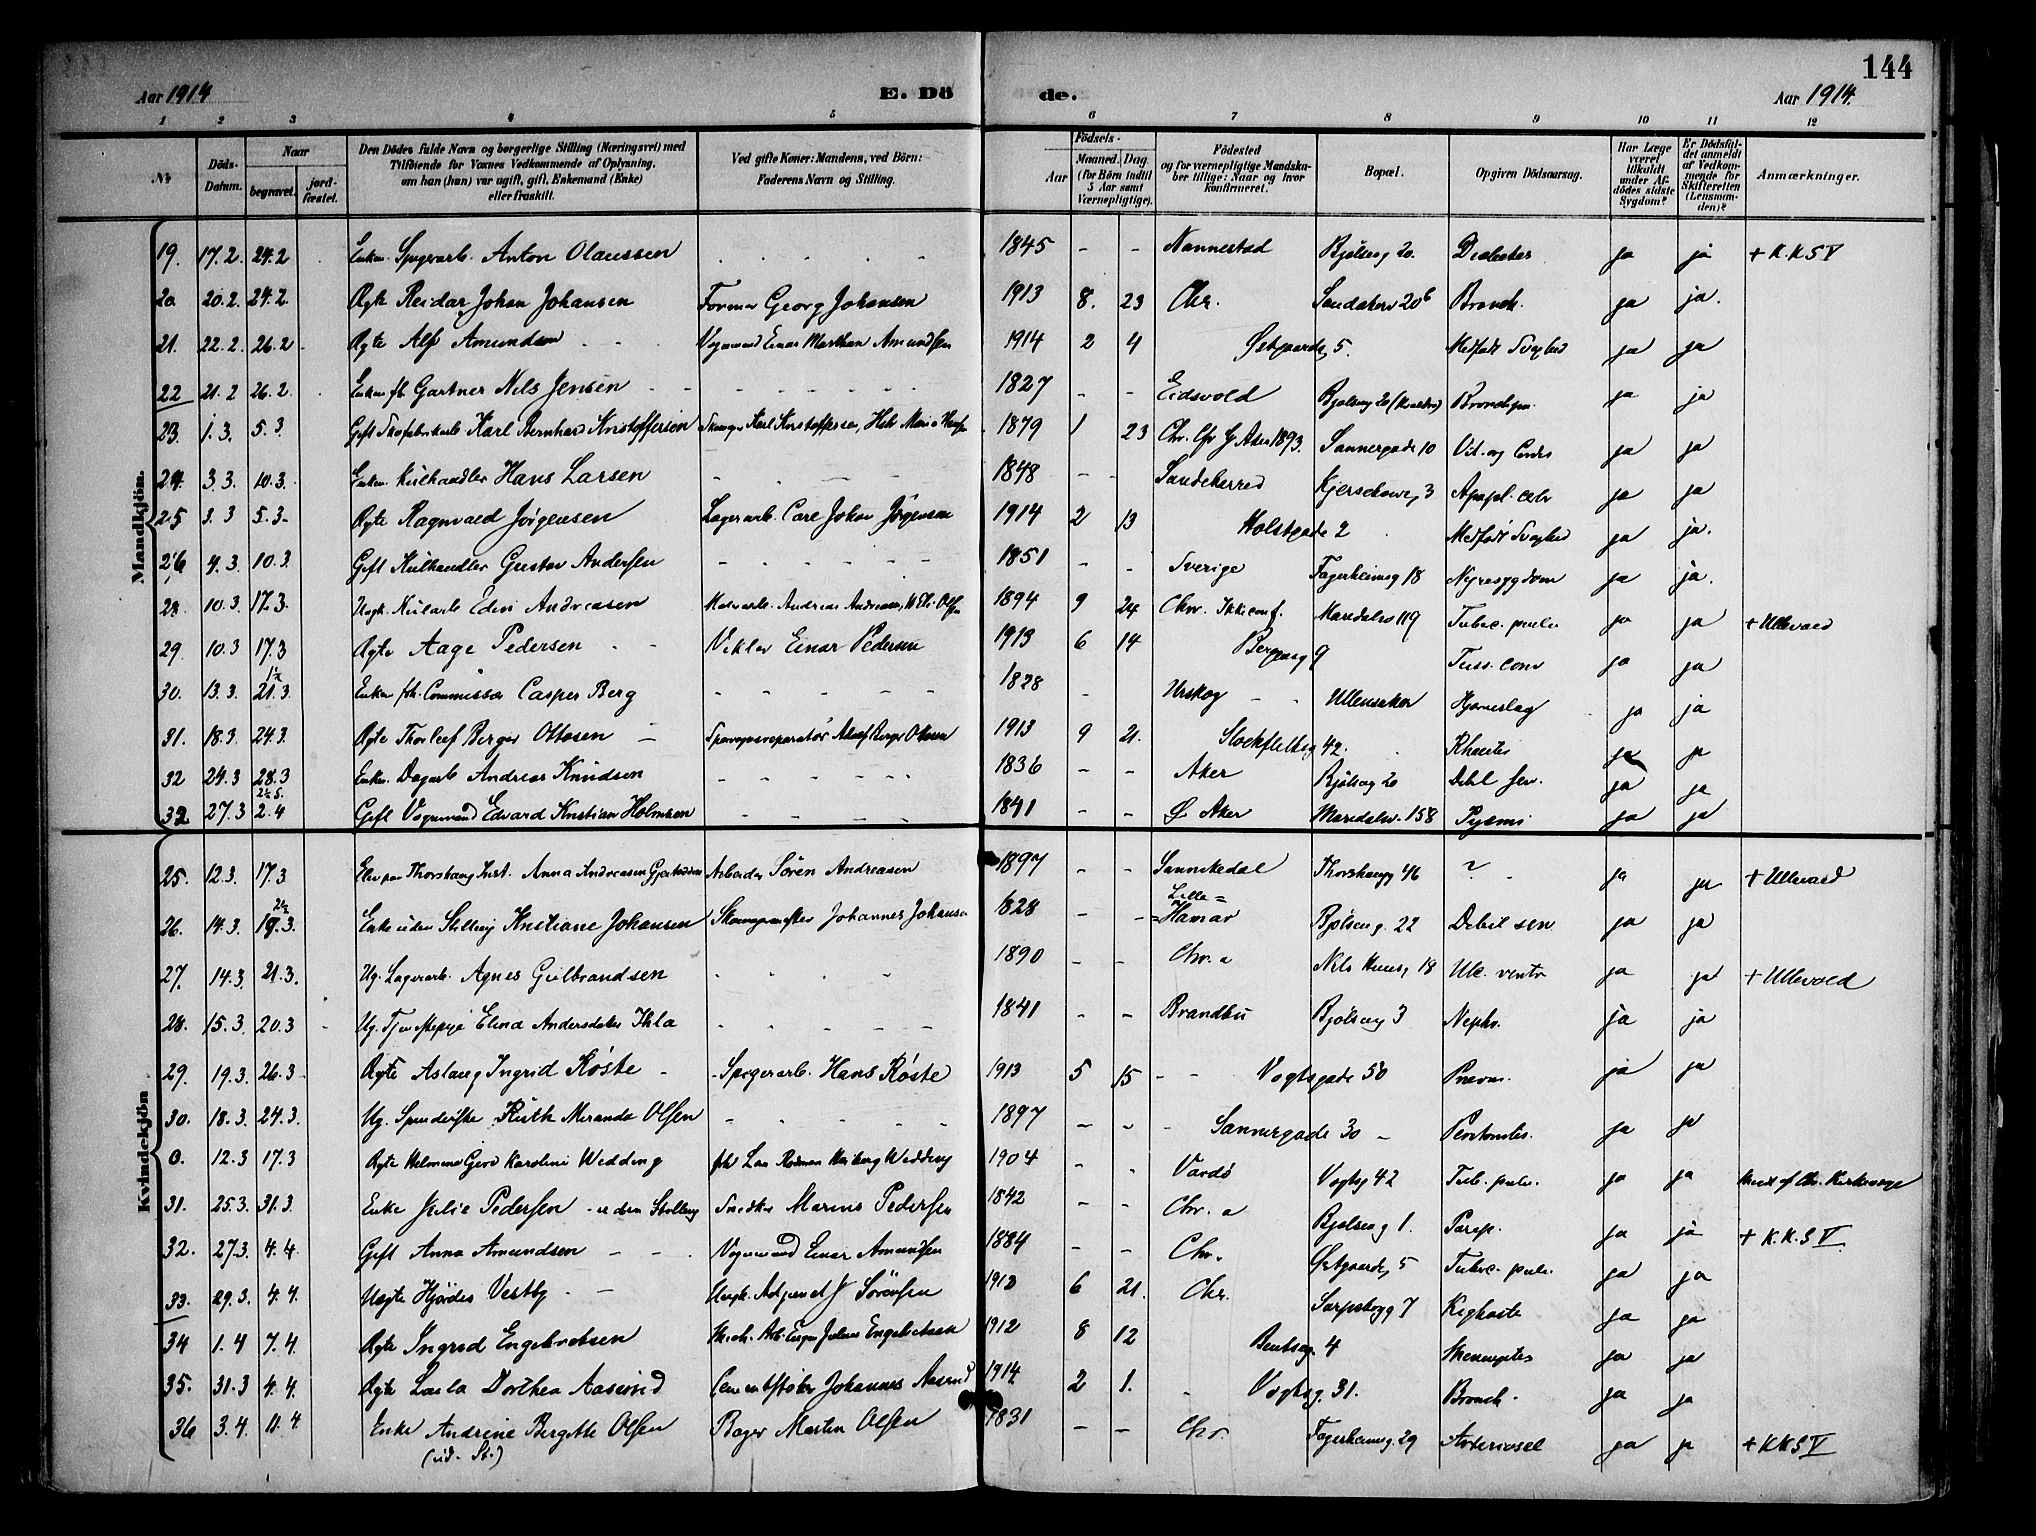 144
Aar 1914
E. Dö
de.
Aar 1914.
1 2 3 4 5 6 7 8 9 10 11 12
№
Döds-Datum.
Naar
begravet.
jord-fæstet.
Den Dödes fulde Navn og borgerlige Stilling (Næringsvei) med
Tilföiende for Voxnes Vedkommende af Oplysning,
om han (hun) var ugift, gift, Enkemand (Enke)
eller fraskilt.
Ved gifte Koner: Mandens, ved Börn:
Faderens Navn og Stilling.
Födsels-
Aar
Maaned. Dag.
(for Börn indtil
5 Aar samt
Værnepligtige).
Födested
og for værnepligtige Mandska-
ber tillige: Naar og hvor
konfirmeret.
Bopæl.
Opgiven Dödsaarsag.
Har Læge
været
tilkaldt
under Af-
dödes sidste
Sygdom?
Er Dödsfal-
det anmeldt
af Vedkom-
mende for
Skifteretten
(Lensman-
den)?
Anmærkninger.
Mandkjön.
19. 17.2. 24.2 Enkem. Spigerarb. Anton Olaussen 1845 - - Nannestad Bjølseng 20. Diabetes ja ja + K.K.S V
20 20.2. 24.2. Ægte Reidar Johan Johansen Former Georg Johansen 1913 8. 23 Chr. Sandakerv 20b Bronch. ja ja.
21. 22.2. 26.2 Ægte Alf Amundsen Vognmand Einar Marthan Amundsen 1914 2 4 Østgaardsg 5. Medfødt Svaghed ja ja
22 21.2 26.2. Enkem fh. Gartner Nils Jensen 1827 - - Eidsvold Bjølseng 20 Bronchpn. ja ja
23. 1.3. 5.3 Gift Skofabrikarb Karl Bernhard Kristoffersen Karl Kristoffersen, 1879 1 23 Chr. Aker 1893. Sannergade 10 Vit. og Cordis ja ja
24. 3.3. 10.3. Enkem. Kulhandler Hans Larsen 1848 - - Sandeherred Kjerschowsg 3 Apopl. cebr ja ja
25 3.3 5.3- Ægte Ragnvald Jørgensen Lagerarb. Carl Johan Jørgensen 1914 2 13 Holstgade 2 Medfødt Svaghed ja ja.
26 4.3. 10.3. Gift Kulhandler Gustav Andersen 1851 - - Sverige Fagerheimsg 18 Nyresygdom ja ja.
28. 10.3. 17.3. Edin Andreasen Andreas Andreasen, Olsen 1894 9 24 Chr. Ikke conf. Maridalsv 119 Tuberc. pulm ja ja + Ullevaal
29. 10.3 17.3 Ægte Aage Pedersen Vikler Einar Pedersen 1913 6 14 Bergensg 9 Tuss. conv ja ja
30. 13.3. 21.3. Enkem fh. Commissær Casper Berg 1828 - Urskog - - Ullensaker Hjerneslag ja ja
31. 18.3. 24.3. Ægte Thorleif Berger Ottosen Adolf Berger Ottosen 1913 9 21. Stockfletsg 42. Rhacitis ja ja
32 24.3 28.3 Enkem. Dagarb Andreas Knudsen 1836 - - Aker Bjølseng 20 Debil sen. ja ja
32 27.3 2.4 Gift Vognmand Edvard Kristian Holmsen 1841 - - Ø Aker Maridalsv. 158 Pyæmi ja ja
Kvindekjön
25. 12.3. 17.3 Elev paa Thorshaug Inst. Anna Andreasen Arbeider Søren Andreasen 1897 - - Sannikedal Thorshaugg 46 ? ja ja + Ullevaal
26. 14.3. 19.3. Enke uden Stilling Kristiane Johansen Johannes Johansen 1828 - - Lille=
=Hamar Bjølseng. 22 Debil sen ja ja
27. 14.3. 21.3. Ug. Lagerarb. Agnes Gulbrandsen 1890 - - Chr.a Nils Huusg 18 Ulc. ventr ja ja + Ullevold
28. 15.3. 20.3 Ug. Tjenestepige Elina Andersdatter Ihla 1841 - - Brandbu Bjølseng 3 Nephr. ja ja
29. 19.3. 26.3 Ægte Aslaug Ingrid Røste Spigerarb. Hans Røste 1913 5 15 - - Vogtsgade 50 Pnevm. ja ja
30. 18.3. 24.3. Ug. Spinderske Ruth Miranda Olsen 1897 - - - Sannergade 30 Peritonitis. ja ja
0. 12.3 17.3 Ægte Karoline Wedding Wedding 1904 - - Vardø Vogtsg 42 Tub. pulm. ja ja
31. 25.3. 31.3. Enke Julie Pedersen uden Stilling Snedker Marius Pedersen 1842 Chr.a Bjølseng 1. Parap. ja ja
32. 27.3. 4.4. Gift Anna Amundsen Vognmand Einar Amundsen 1884 - - Chr. Østgaardsg 5 Tuberc. pulm. ja ja + K.K.S V.
33. 29.3. 4.4. Uægte Hjørdis Vestby Sørensen 1913 6 21. Chr. Sarpsborgg 7 Kighoste ja ja
34 1.4 7.4. Ægte Ingrid Engebretsen Engebretsen 1912 8 12 Bentseg. 4 Meningitis ja ja
35. 31.3 4.4. Ægte Laila Dorthea Aaserud Cementstøber Johannes Aaserud 1914 2 1. Vogtsg. 31. Bronch. ja ja
36 3.4. 11.4 Enke Andrine Bergitte Olsen Bager Martin Olsen 1831 - - Chr. Fagerheimsg. 29 Arterioscl ja ja + K K S V
(ud. St.)